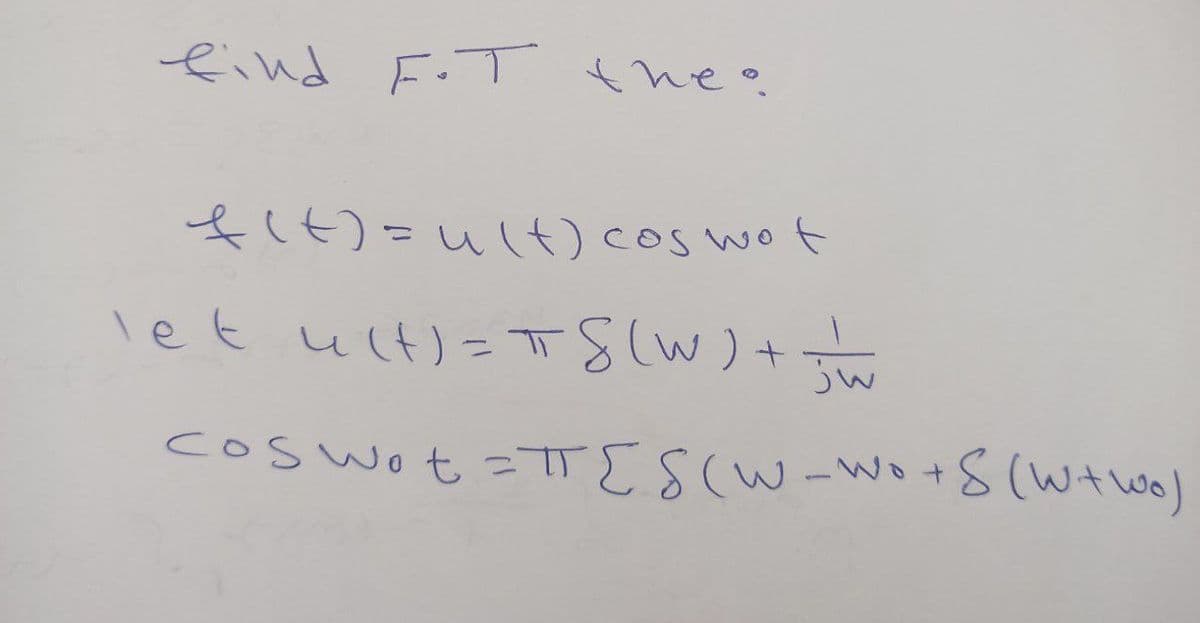 find F.T the:
f(t) = u(t) cos wot
let u(t) = π δ(w) + 1/jw
cos wo t = π [ δ(w - wo + δ (w + wo)